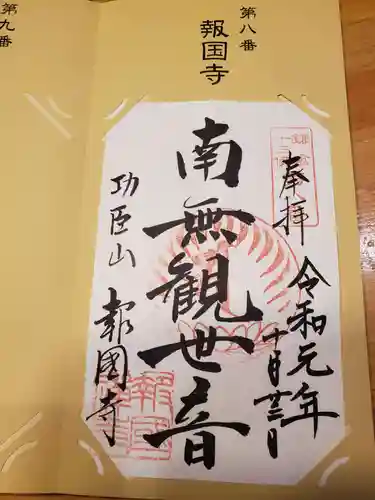 第八番
報国寺
奉拝
令和元年
十月廿三日
南無観世音
功臣山
報國寺
第九番